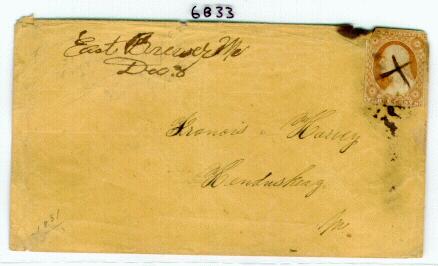 6833
East Brewer Me
Dec 8
Francis Harvey
Kenduskeag
Me